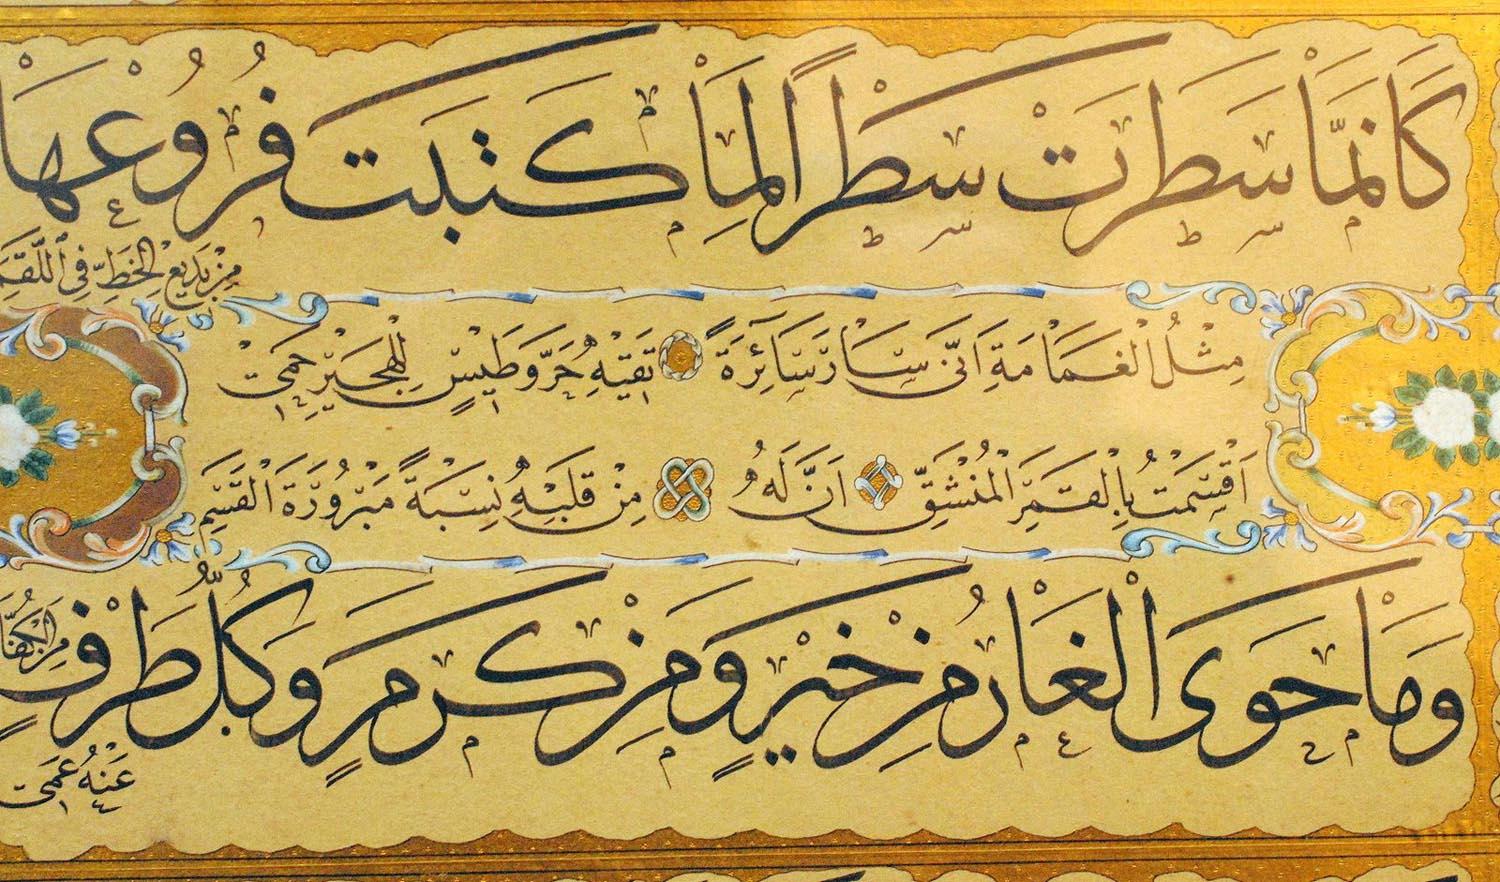 كَأَنَّمَا سَطَرَتْ سَطْرًا لِمَا كَتَبَتْ فُرُوعُهَا
مِنْ بَدِيعِ الْخَطِّ فِي اللَّقَمِ
مِثْلُ الْغَمَامَةِ اَنّٰى سَارَ سَائِرَةً تَقِيهِ حَرَّ وَطِيسٍ لِلْهَجِيرِ حَمِى
اَقْسَمْتُ بِالْقَمَرِ الْمُنْشَقِّ اَنَّ لَهُ مِنْ قَلْبِهِ نِسْبَةً مَبْرُورَةَ الْقَسَمِ
وَمَا حَوَى الْغَارُ مِنْ خَيْرٍ وَمِنْ كَرَمٍ وَكُلُّ طَرْفٍ
مِنَ الْكُفَّارِ
عَنْهُ عَمِى